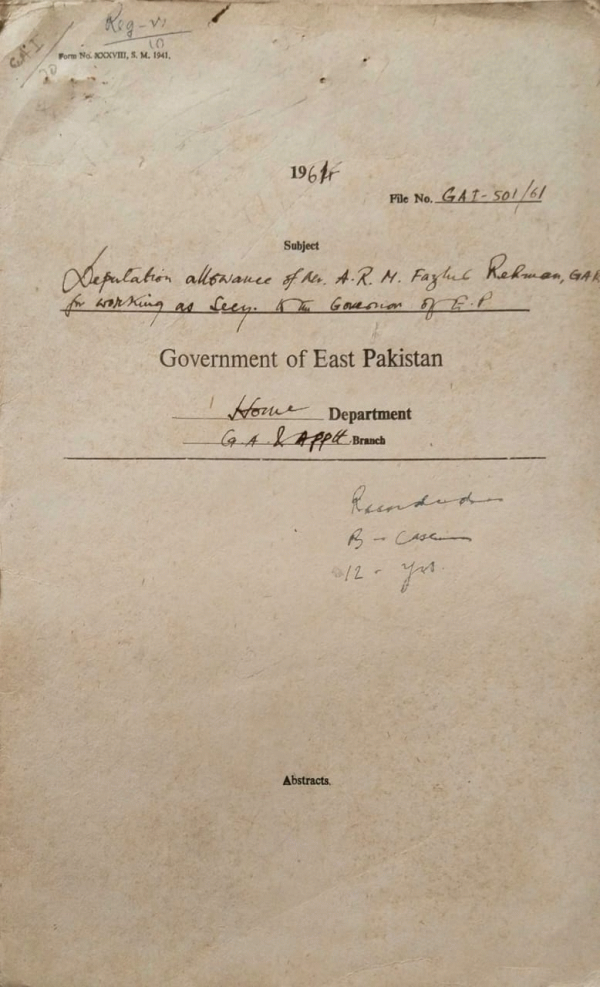 Reg-VI
10
GAI
Form No. XXXVIII, S. M. 1941.
1961
File No. GAI-501/61
Subject
Deputation allowance of Mr. A. R. M. Fazlul Rehman, GAR
for working as Secy. to the Governor of E. P
Government of East Pakistan
Home Department
G. A. & Apptt Branch
B - Case
12 - yrs.
Abstracts.